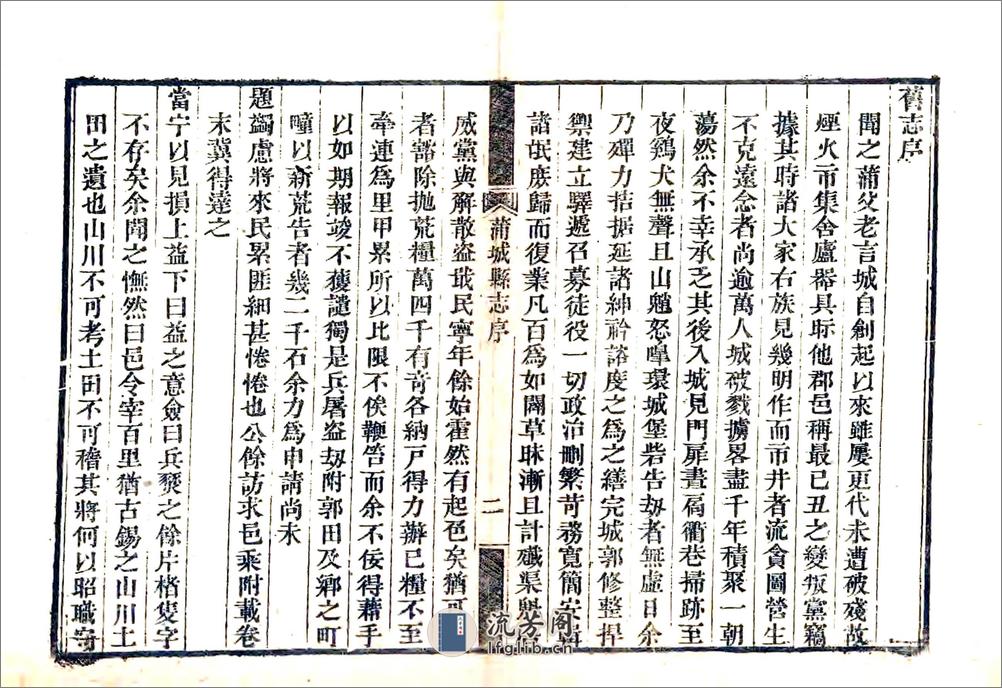 舊志序
聞之蒲父老言城自創起以來雖屢更代未遭破殘故
煙火市集舍廬器具眎他郡邑稱最己丑之變叛黨竊
據其時諸大家右族見幾明作而市井者流貪圖營生
不克遠念者尚逾萬人城破戮擄畧盡千年積聚一朝
蕩然余不幸承乏其後入城見門扉晝扃衢巷掃跡至
夜鷄犬無聲且山魈怒嘷環城堡砦告刼者無虛日余
乃殫力拮据延諸紳衿諮度之為之繕完城郭修整捍
禦建立驛遞召募徒役一切政治刪繁苛務寬簡安
諸氓庶歸而復業凡百為如闢草昧漸且計殲渠魁
蒲城縣志序
二
威黨與解散盜戢民寧年餘始霍然有起色矣猶
者豁除拋荒糧萬四千有奇各納戸得力辦已糧不至
牽連為里甲累所以比限不俟鞭笞而余不佞得藉手
以如期報竣不獲譴獨是兵屠盜刼附郭田及鄉之町
畽以新荒告者幾二千石余力為申請尚未
題蠲慮將來民累匪細甚惓惓也公餘訪求邑乘附載卷
末冀得達之
當宁以見損上益下曰益之意僉曰兵燹之餘片楮隻字
不存矣余聞之憮然曰邑令宰百里猶古錫之山川土
田之遺也山川不可考土田不可稽其將何以昭職守
流芳阁
lfglib.cn